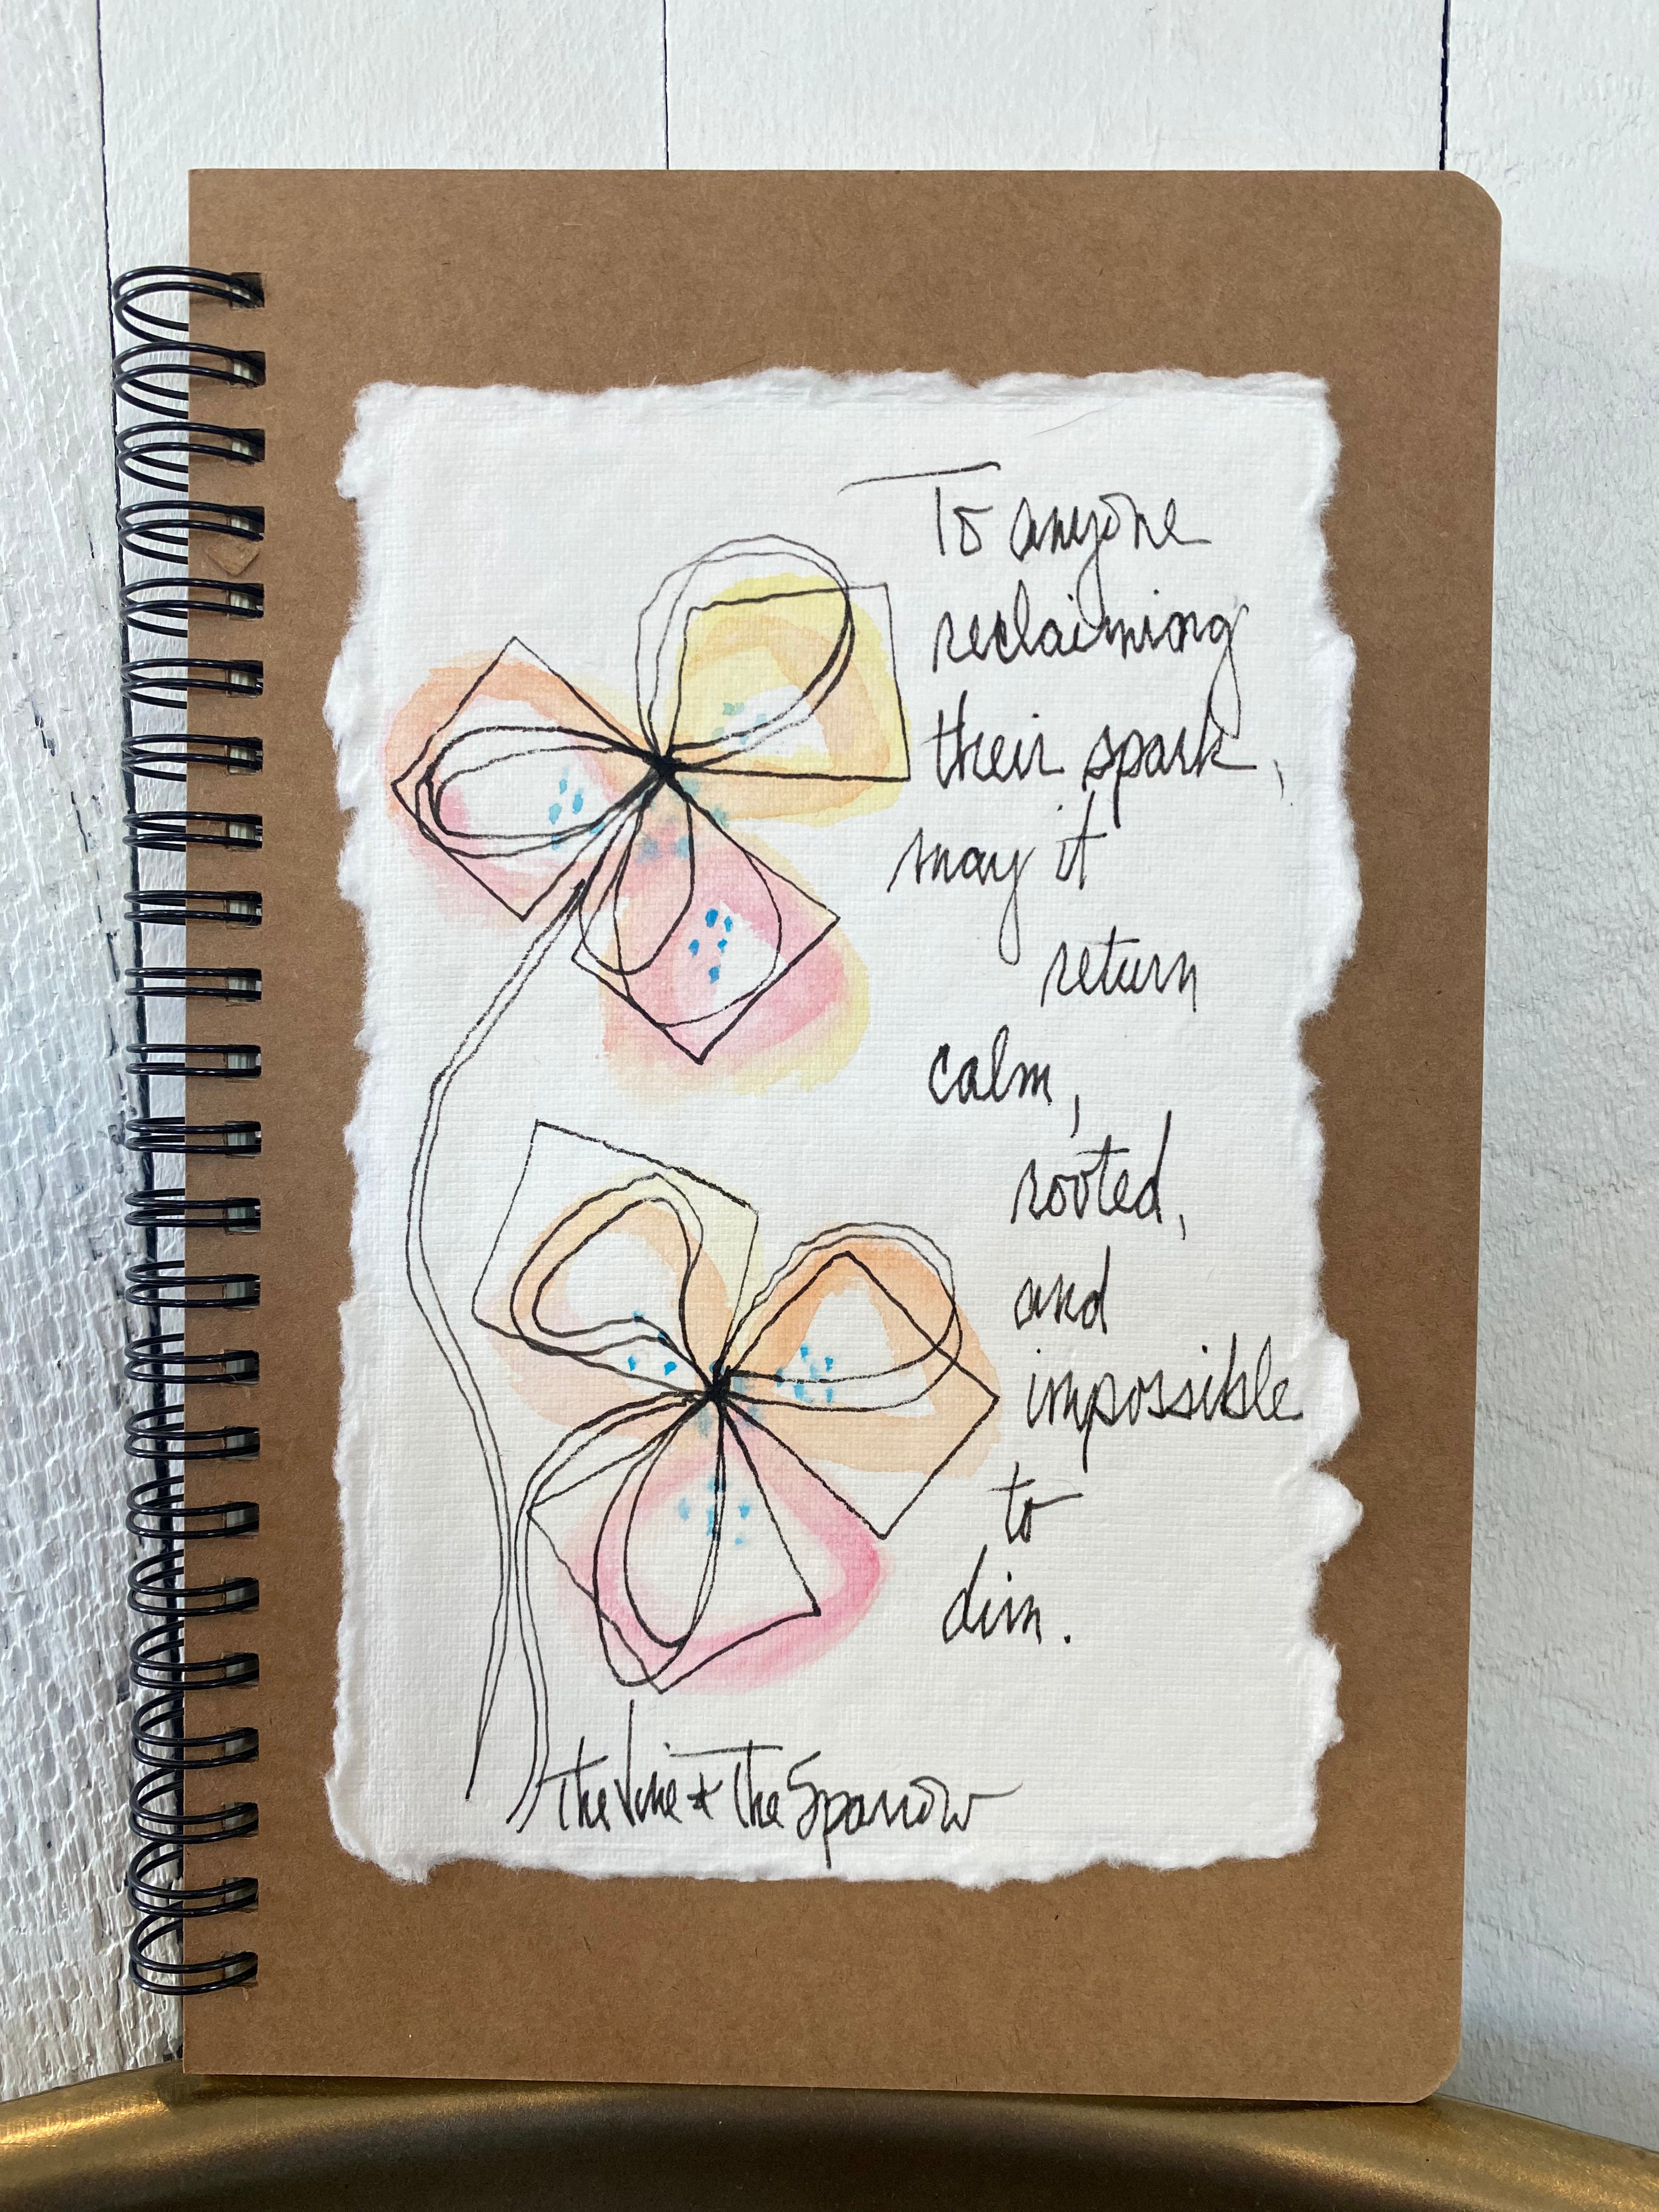 To anyone
reclaiming
their spark,
may it
return
calm,
rooted,
and
impossible
to
dim.
The Vine & The Sparrow